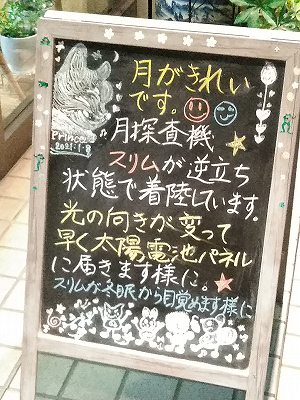 月がきれい
です。
Prince
月探査機
スリムが逆立ち
状態で着陸しています。
光の向きが変って
早く太陽電池パネル
に届きます様に。
スリムが冬眠から目覚めます様に